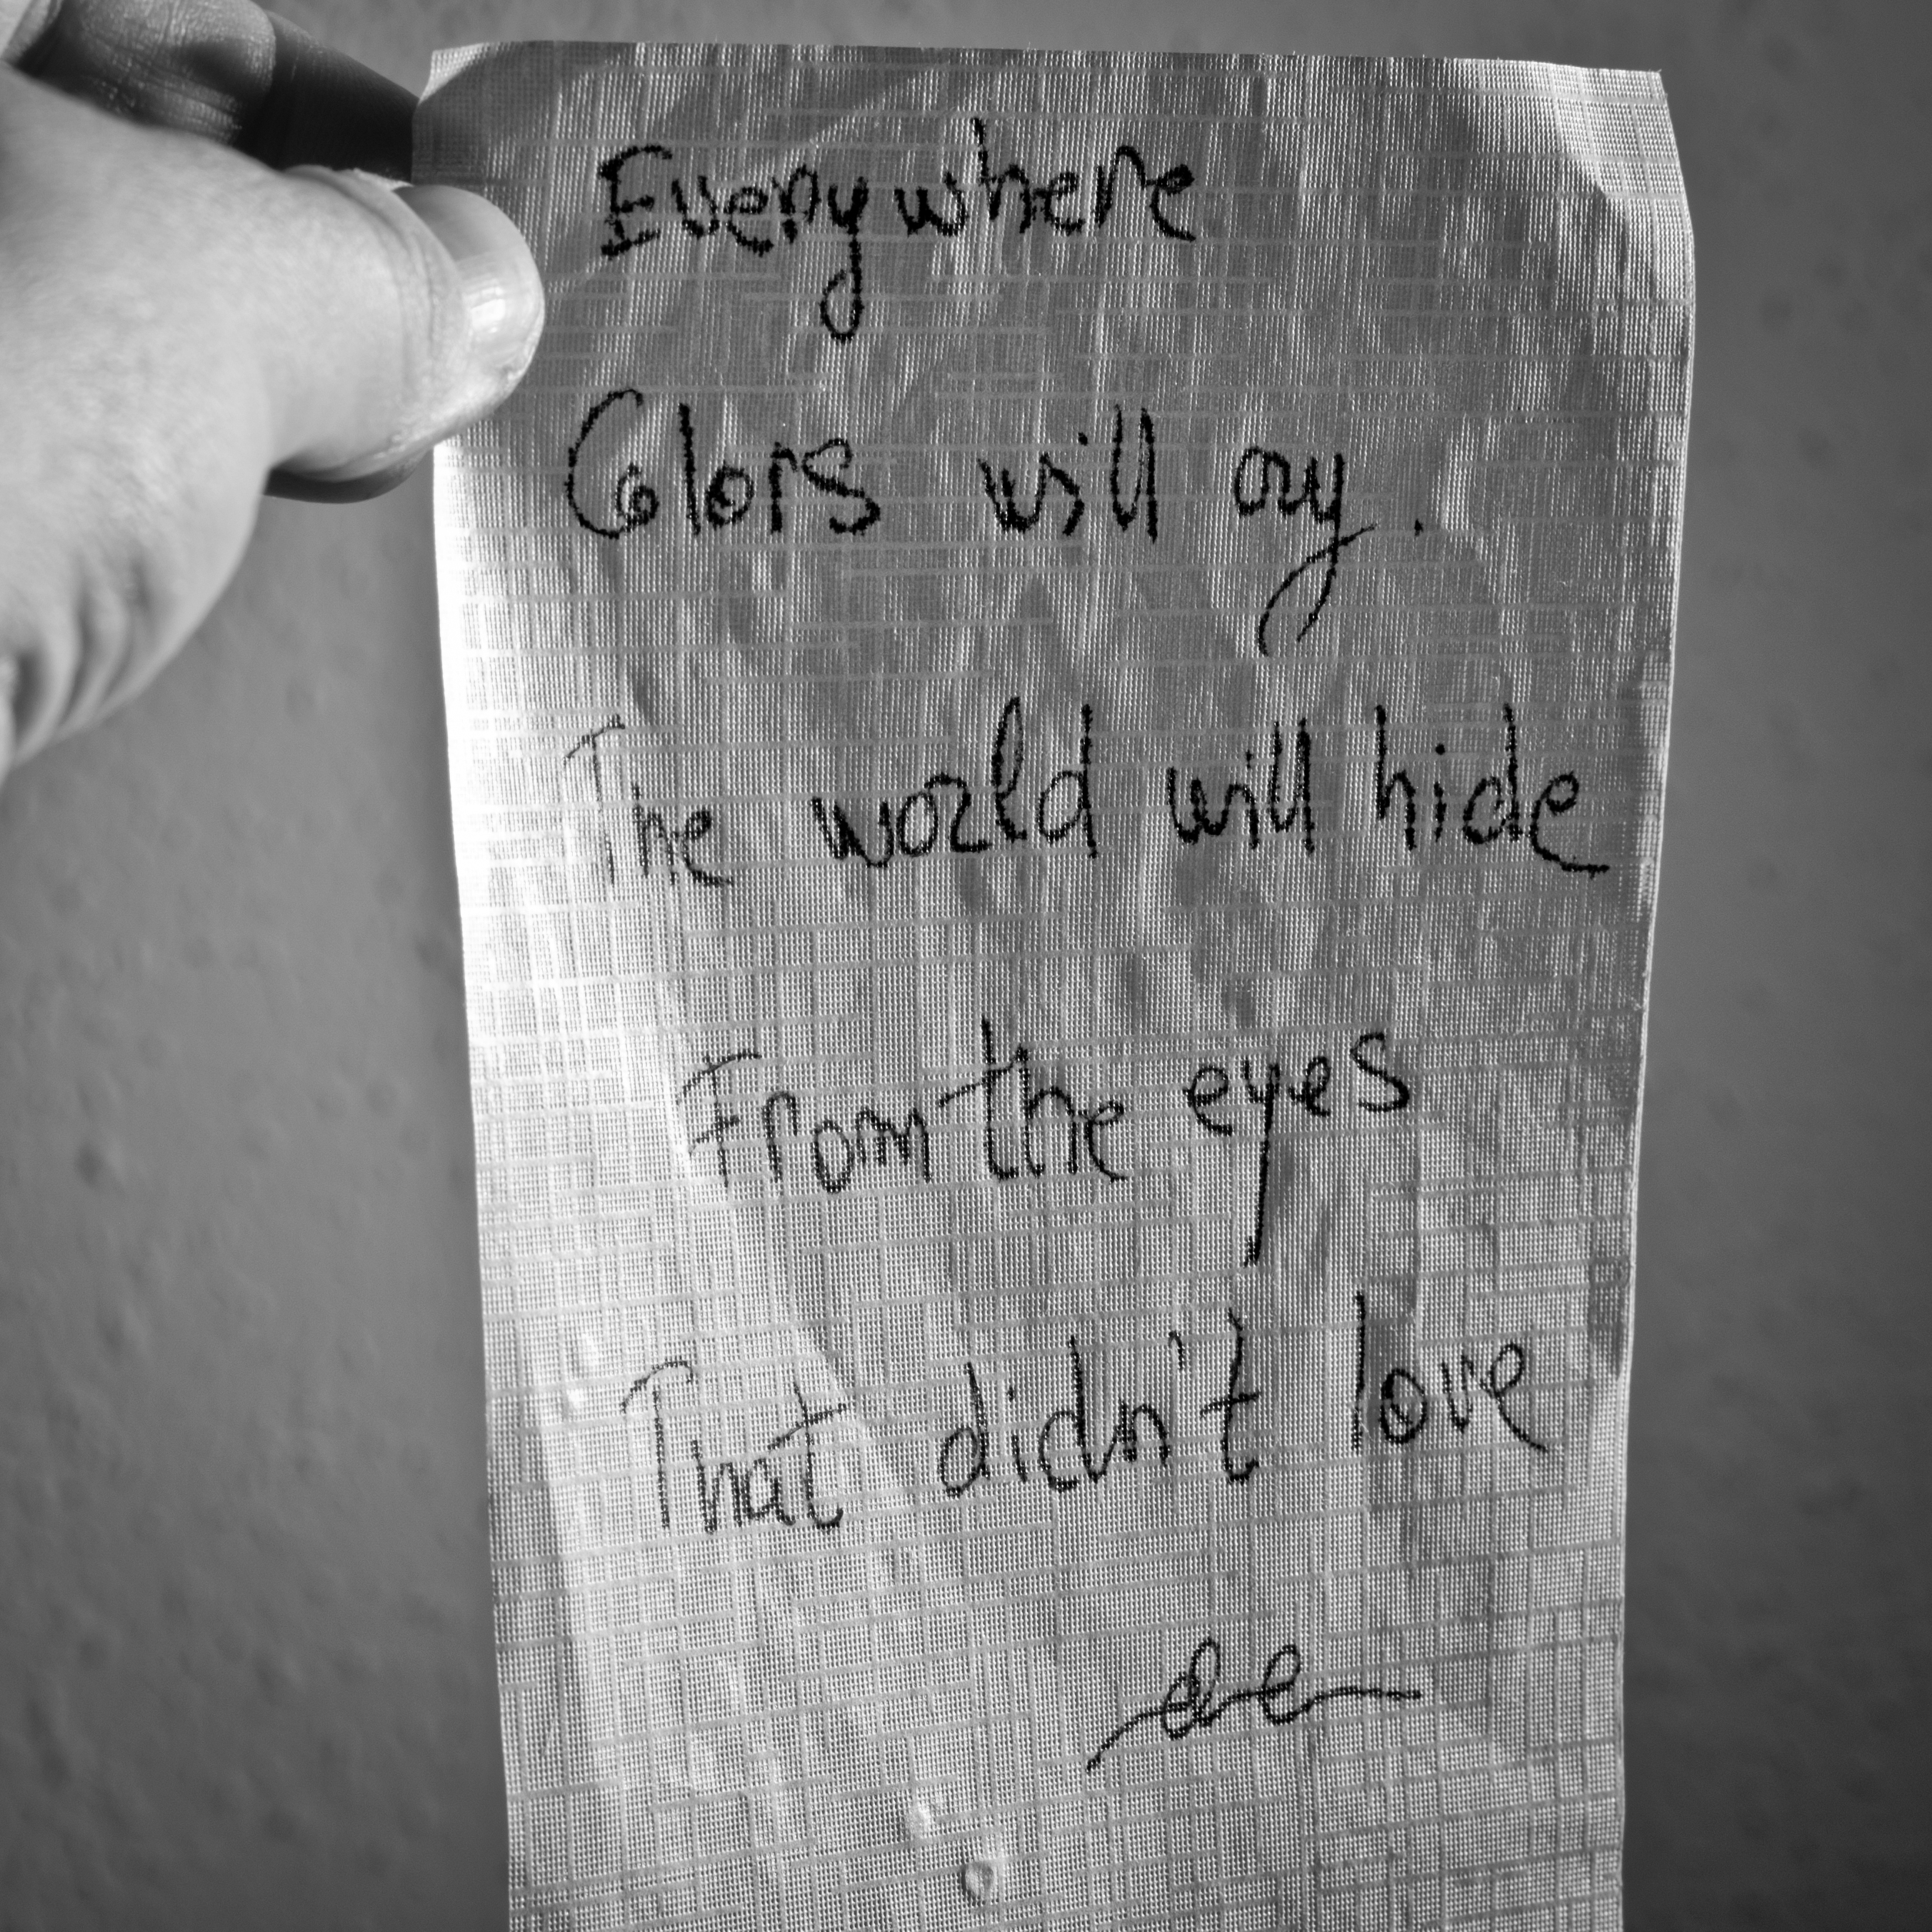 Everywhere
Colors will cry.
The world will hide
From the eyes
That didn't love